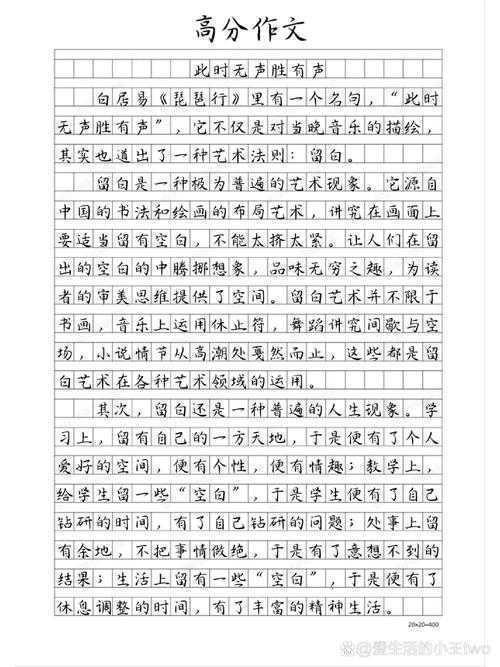 高分作文
此时无声胜有声
白居易《琵琶行》里有一个名句，“此时
无声胜有声”，它不仅是对当晚音乐的描绘，
其实也道出了一种艺术法则：留白。
留白是一种极为普遍的艺术现象。它源自
中国的书法和绘画的布局艺术，讲究在画面上
要适当留有空白，不能太挤太紧。让人们在留
出的空白的中腾挪想象，品味无穷之趣，为读
者的审美思维提供了空间。留白艺术并不限于
书画，音乐上运用休止符，舞蹈讲究间歇与空
场，小说情节从高潮处戛然而止，这些都是留
白艺术在各种艺术领域的运用。
其次，留白还是一种普遍的人生现象。学
习上，留有自己的一方天地，于是便有了个人
爱好的空间，便有个性，便有情趣；教学上，
给学生留一些“空白”，于是学生便有了自己
钻研的时间，有了自己钻研的问题；处事上留
有余地，不把事情做绝，于是有了意想不到的
结果；生活上留有一些“空白”，于是便有了
休息调整的时间，有了丰富的精神生活。
20x20=400
@爱生活的小王two